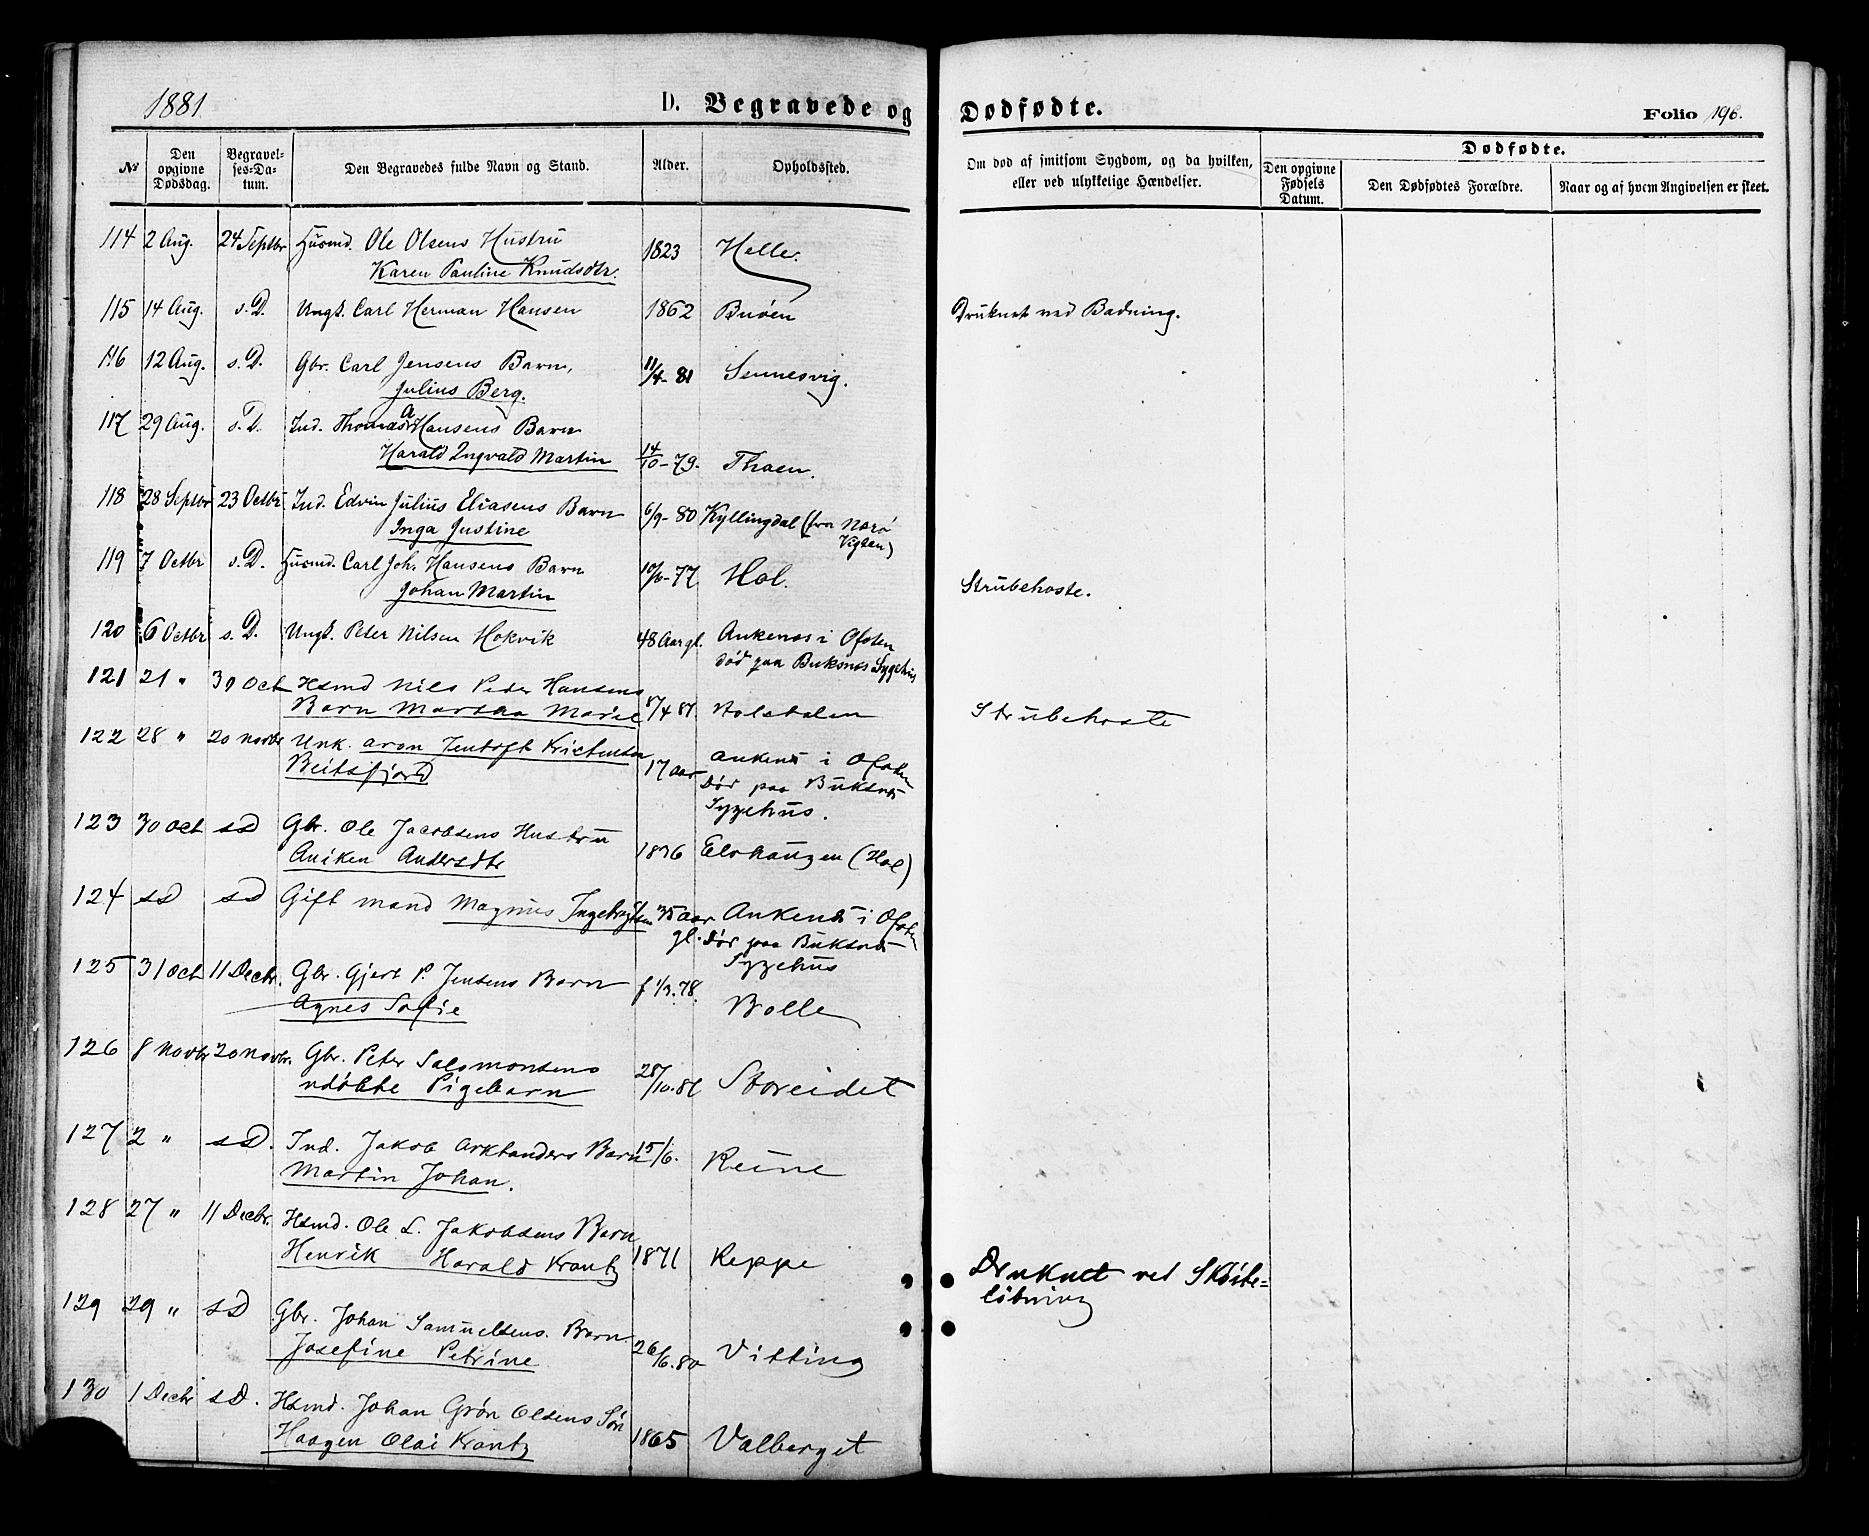 1881.
D. Begravede og Dødfødte.
Folio 196.
№
Den opgivne Dødsdag.
Begravel-ses-Da-tum.
Den Begravedes fulde Navn og Stand.
Alder.
Opholdssted.
Om død af smitsom Sygdom, og da hvilken, eller ved ulykkelige Hændelser.
Dødfødte.
Den opgivne Fødsels Datum.
Den Dødfødtes Forældre.
Naar og af hvem Angivelsen er skeet.
114 2 Aug. 24 Septbr Husmd. Ole Olsens Hustru 1823 Helle.
Karen Pauline Knudsdtr.
115 14 Aug. s.D. Ungk. Carl Herman Hansen 1862 Buøen Druknet ved Badning.
116 12 Aug. s.D. Gbr. Carl Jensens Barn, 11/4-81 Sennesvig.
Julius Berg.
117 29 Aug. s.D. Ind. Thomas Hansens Barn
Harald Ingvald Martin 14/10-79. Thoen.
118 28 Septbr 23 Octbr Ind. Edvin Julius Eliasens Barn 6/9-80 Kyllingdal (fra Nærø
Inga Justine Vigten)
119 7 Octbr s.D. Husmd. Carl Joh. Hansens Barn Hol. Strubehoste.
Johan Martin
120 6 Octbr s.D. Ungk. Peter Nilsen Hokvik 48 Aar gl. Ankenes i Ofoten
død paa Buksnes Sygehus
121 21 " 30 Oct Hsmd Nils Peder Hansens
Barn Martha Marie /4 81 Strubehoste
122 28 " 20 Novbr Unk. Aron Jentoft Kristensen
Beitsfjord 17 aar Ankenes i Ofoten
Dør paa Buksnes
Sygehus.
123 30 Oct sD Gbr. Ole Jacobsens Hustru
Aniken Andersdtr 1836 Elvhaugen (Hol)
124 sD sD Gift mand Magnus Ingebrigtsen 35 aar Ankenes i Ofoten
gl. Dør paa Buksnes
Sygehus
125 31 Oct 11 Decbr. Gbr. Gjert P. Jensens Barn f 1/3.78.
Agnes Sofie Bolle
126 8 Novbr 20 Novbr. Gbr. Peter Salomonsens 28/10.81 Storeidet
udøbte Pigebarn
127 2 " sD. Ind. Jakob Arktanders Barn 15/6. Reine
Martin Johan.
128 27 " 11 Decbr. Hsmd. Ole L. Jakobsens Barn
Henrik Harald Krantz 1871 Reppe Druknet ved Skøite-
løbning
129 29 " sD Gbr. Johan Samuelsens Barn.
Josefine Petrine 26/6.80 Vitting
130 1 Decbr sD. Hsmd. Johan Grøn Olsens Søn
Haagen Olai Krantz 1865 Valberget